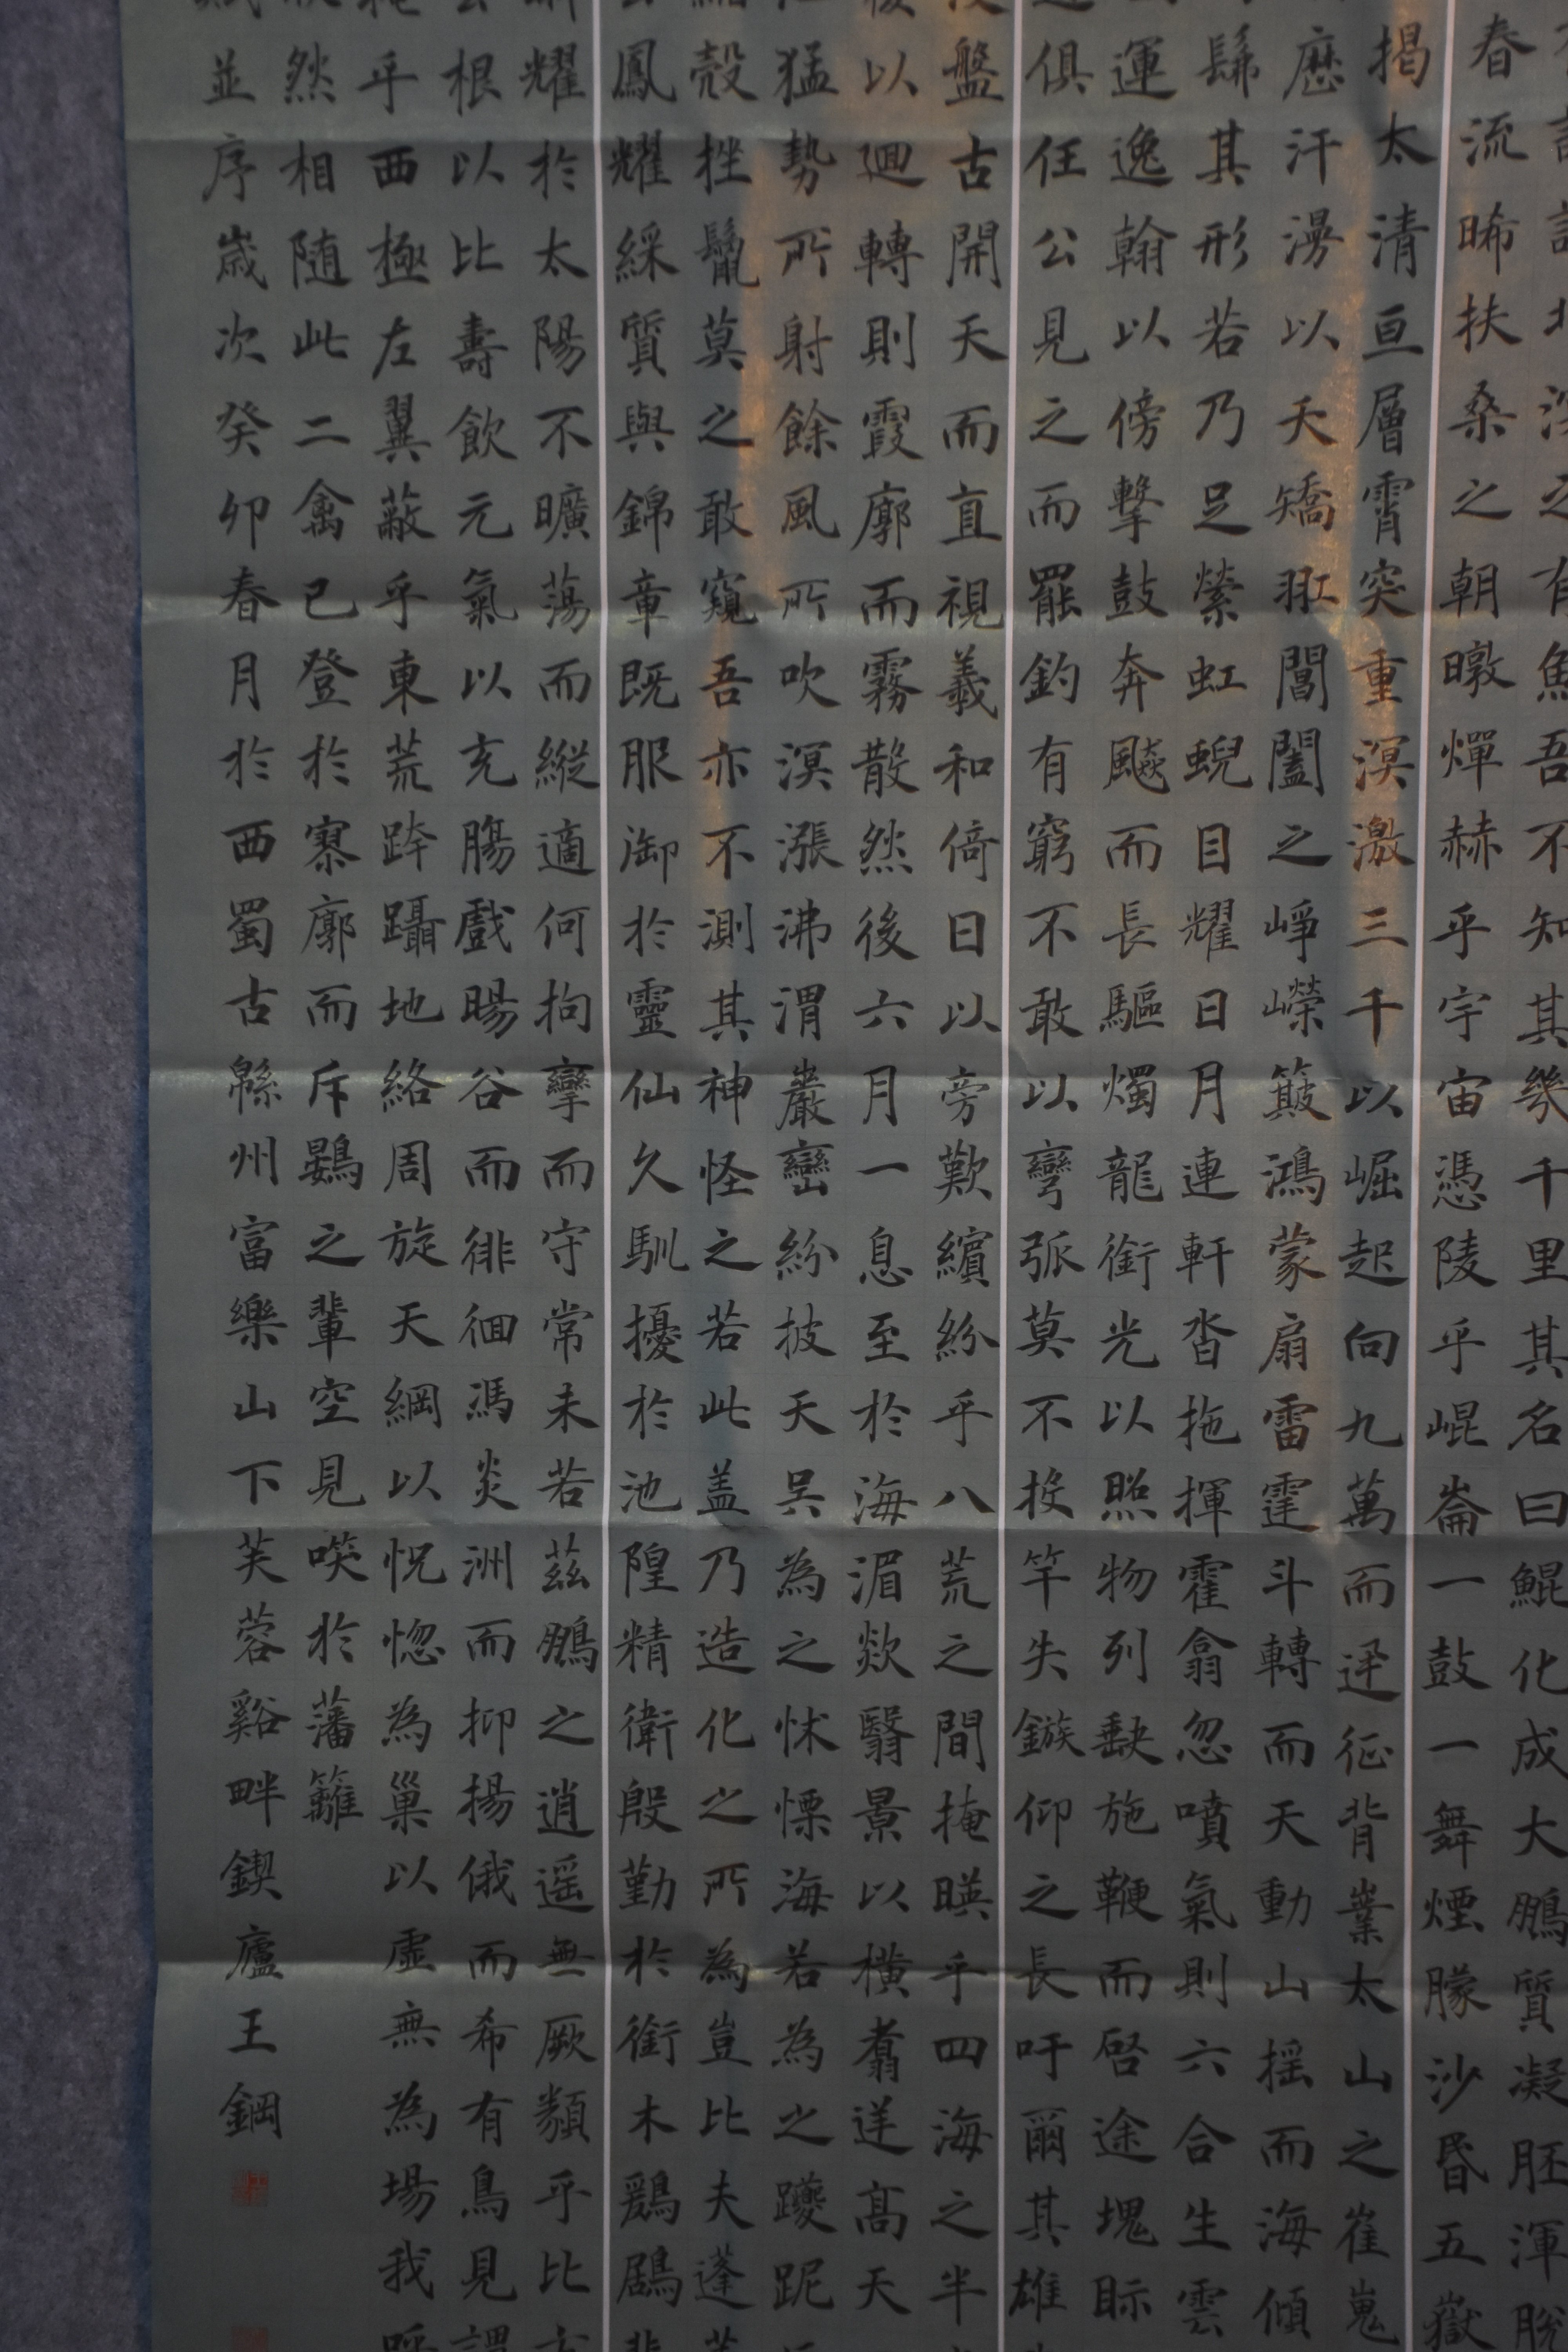 之有魚吾不知其幾千里其名曰鯤化成大鵬質凝胚渾
春流晞扶桑之朝暾燀赫乎宇宙憑陵乎崐崙一鼓一舞煙朦沙昬五嶽
揭太清亘層霄突重溟激三千以崛起向九萬而迅征背嶪太山之崔嵬
厯汗漫以夭矯羾閶闔之崢嶸簸鴻蒙扇雷霆斗轉而天動山摇而海傾
髴其形若乃足縈虹蜺目耀日月連軒沓拖揮霍翕忽噴氣則六合生雲
運逸翰以傍擊鼓奔飈而長驅燭龍銜光以照物列缺施鞭而啓途塊眎
俱任公見之而罷釣有窮不敢以彎弧莫不投竿失鏃仰之長吁爾其雄
盤古開天而直視羲和倚日以旁歎繽紛乎八荒之間掩暎乎四海之半
以迴轉則霞廓而霧散然後六月一息至於海湄欻翳景以橫翥逆髙天
猛勢所射餘風所吹溟漲沸渭巖巒紛披天吳為之怵慄海若為之躨跜
殼挫鬣莫之敢窺吾亦不測其神怪之若此盖乃造化之所為豈比夫蓬
鳳耀綵質與錦章既服御於靈仙久馴擾於池隍精衛殷勤於銜木鶢鶋
耀於太陽不曠蕩而縱適何拘攣而守常未若茲鵬之逍遥無厥類乎比
根以比壽飲元氣以充腸戲暘谷而徘徊馮炎洲而抑揚俄而希有鳥見
乎西極左翼蔽乎東荒跨躡地絡周旋天綱以怳惚為巢以虛無為場我
然相随此二禽已登於寥廓而斥鷃之輩空見咲於藩籬
並序歲次癸卯春月於西蜀古緜州富樂山下芙蓉谿畔鍥廬王鋼